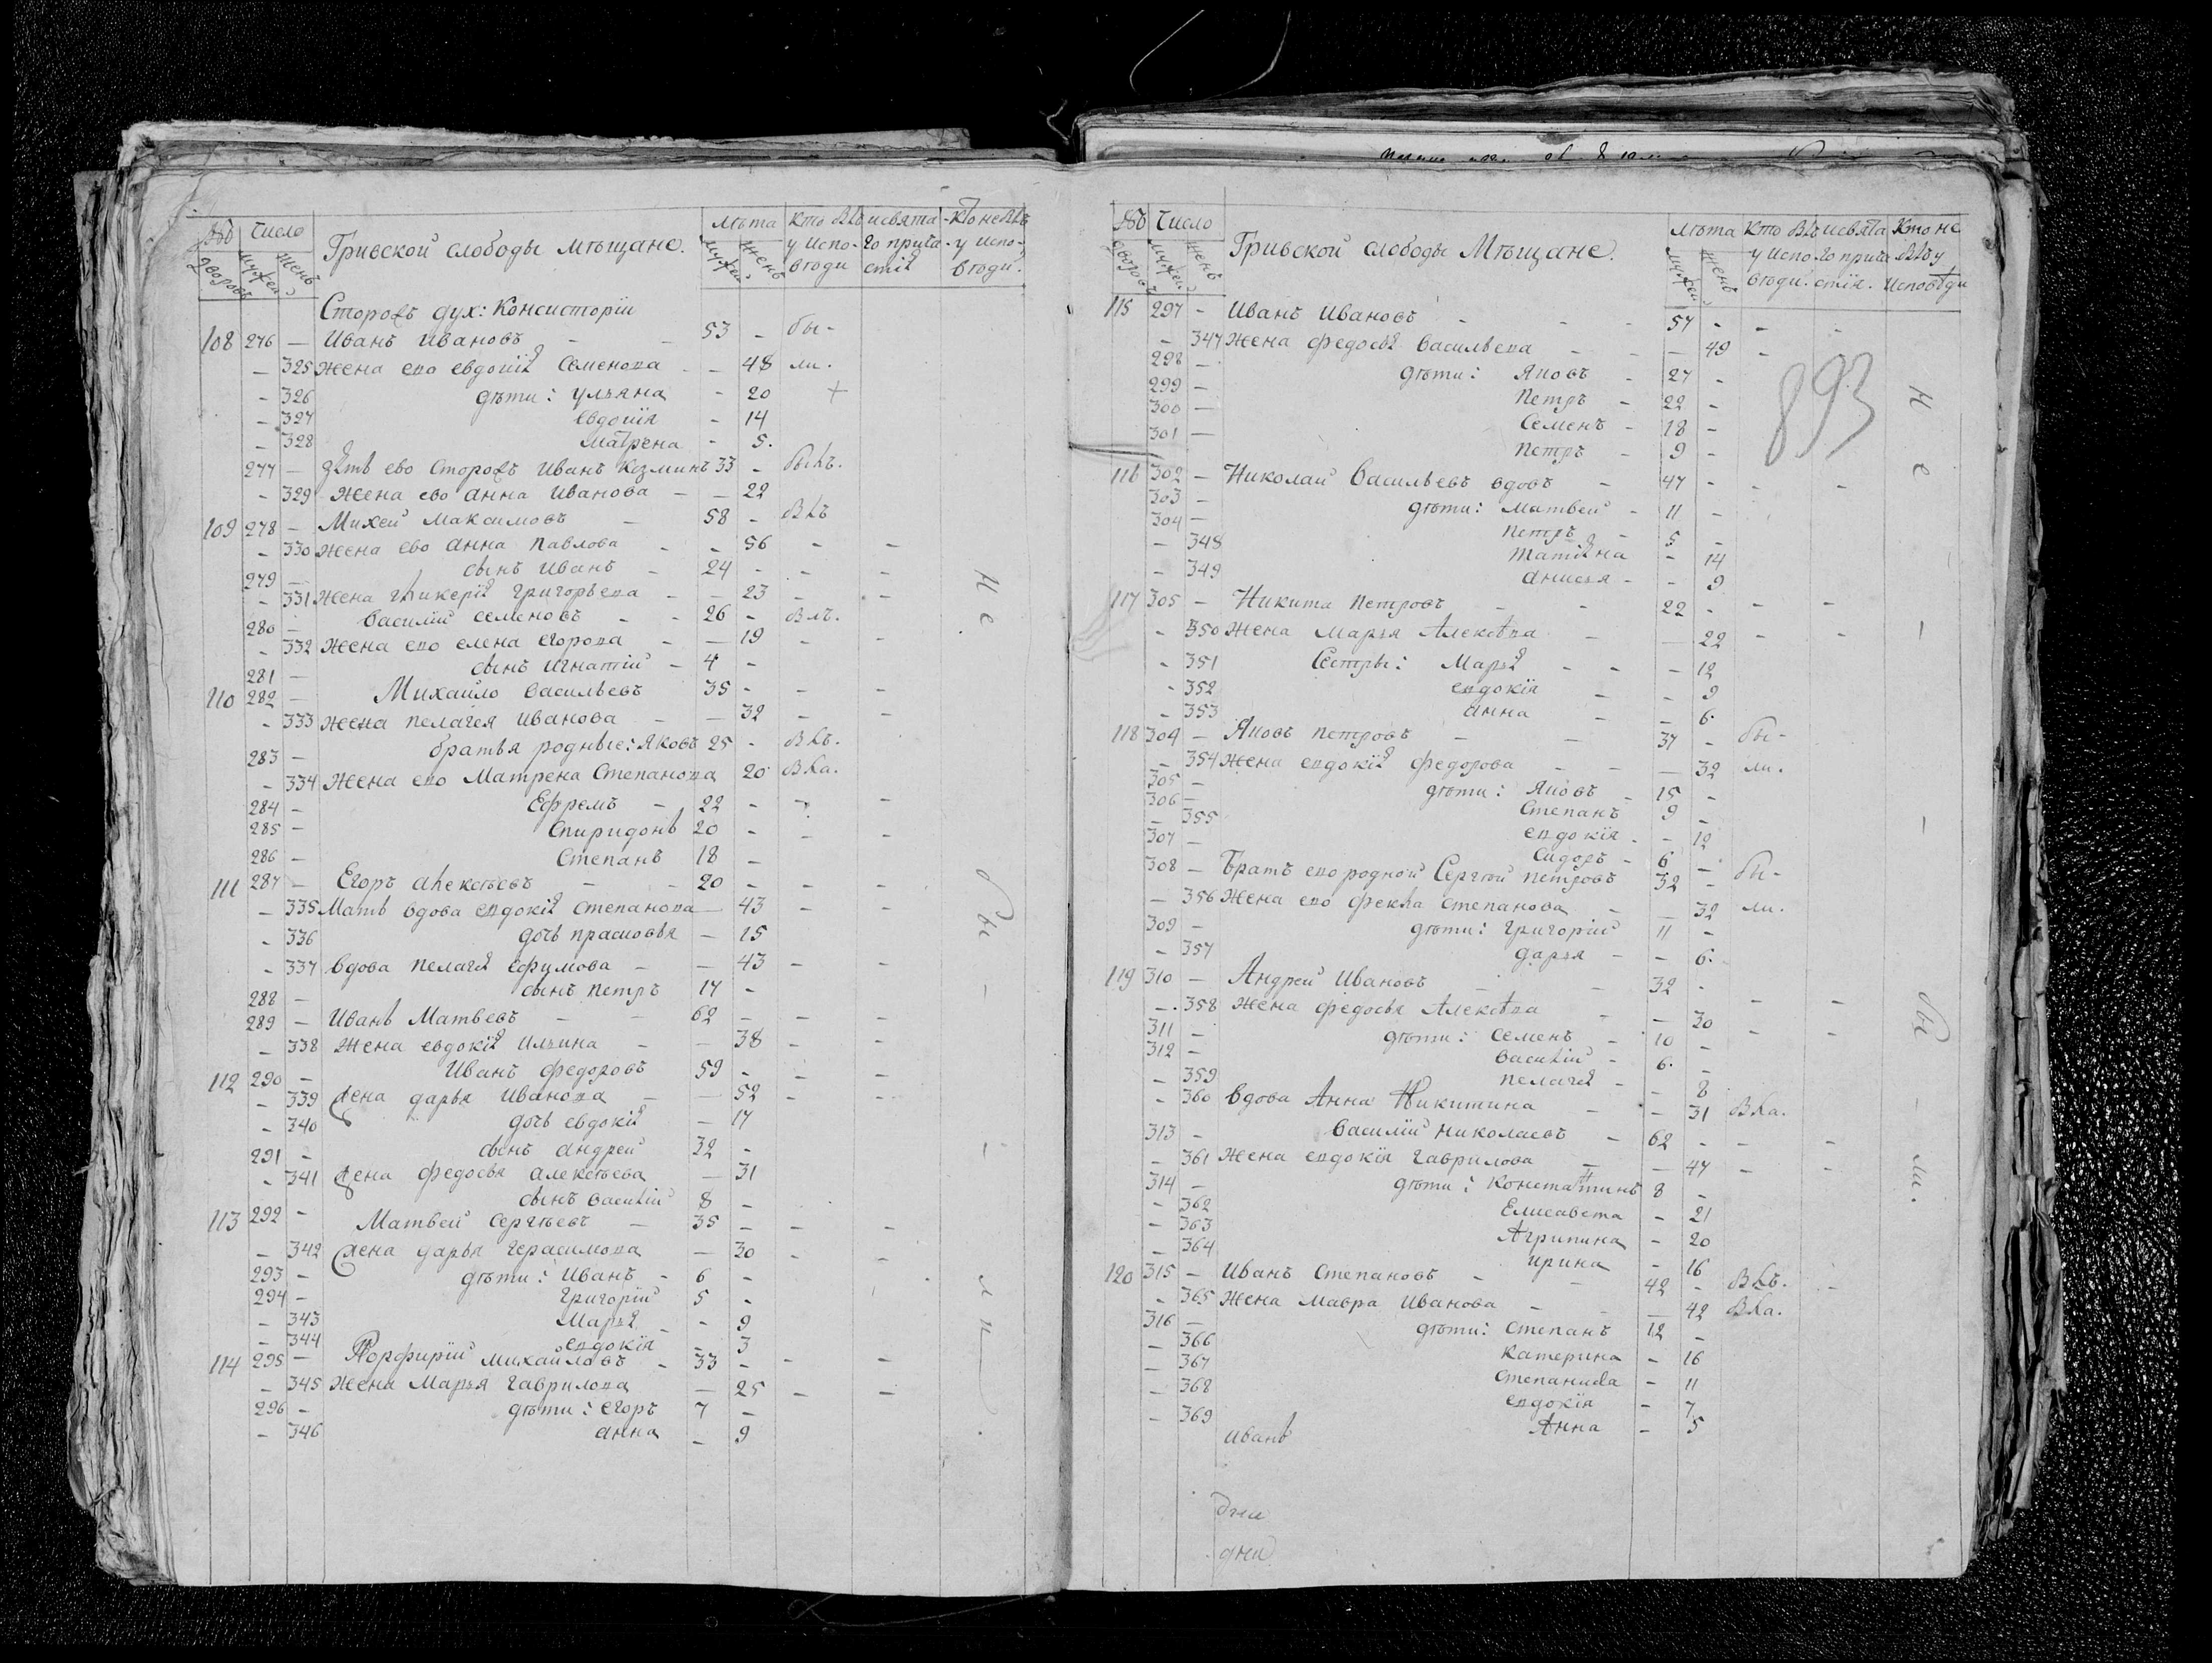 № Число Гривской слободы мѣщане. лѣта Кто былъ у исповѣди и святаго причастія Кто не былъ у исповѣди.
дворовъ мужей женъ мужей женъ
Сторожъ дух: Консисторіи
108 276 — Иванъ Ивановъ - - 53 - бы-
- 325 жена ево евдокія Семенова - - 48 ли.
- 326 дѣти: Ульяна - 20 +
- 327 евдокія - 14
- 328 матрена - 5.
277 — зять ево сторожъ Иванъ Козминъ 33 - былъ.
- 329 жена ево анна Иванова - - 22
109 278 — Михей Максимовъ - 58 - былъ
- 330 жена ево анна павлова - - 56 - -
279 — сынъ Иванъ - 24 - - -
- 331 жена гликерія григорьева - - 23 - -
280 — Василій семеновъ - - 26 - былъ.
- 332 жена ево елена егорова - - 19 - -
281 — сынъ игнатій - 4 -
110 282 — Михайло васильевъ 35 - - -
- 333 жена пелагея Иванова - - 32 - -
283 — братья родные: Яковъ 25 - былъ.
- 334 жена ево Матрена Степанова 20 была.
284 — Ефремъ - 22 - - -
285 — Спиридонъ 20 - - -
286 — степанъ 18 -
111 287 — Егоръ алексѣевъ - - 20 - - -
- 335 Мать вдова евдокія степанова - 43 - -
- 336 дочь прасковья - 15
- 337 вдова пелагея ефимова - - 43 - -
288 — сынъ петръ 17 -
289 — Иванъ Матвеевъ - - 62 - - -
- 338 жена евдокія ильина - - 38 - -
112 290 — Иванъ федоровъ 59 - - -
- 339 жена дарья Иванова - - 52 - -
- 340 дочь евдокія - 17
291 — сынъ андрей 32 -
- 341 жена федосья алексѣева - 31
292 - сынъ василій 8 -
113 Матвей сергѣевъ - 35 - - -
- 342 жена дарья герасимова - 30 - -
293 - дѣти: Иванъ - 6 -
294 - григорій 5 -
- 343 Марья - 9
- 344 евдокія - 3
114 295 — Порфирій михайловъ - 33 - - -
- 345 жена Марья гаврилова - 25 - -
296 - дѣти: егоръ 7 -
- 346 анна - 9
не - бы - ли.
№ Число Гривской слободы Мѣщане. лѣта Кто былъ у исповѣди и святаго причастія. Кто не былъ у исповѣди
дворовъ мужей женъ мужей женъ
893
115 297 - Иванъ Ивановъ - - - 57 - - -
- 347 жена федосья васильева - - - 49 -
298 - дѣти: Яковъ - 27 -
299 - Петръ - 22 -
300 - Семенъ - 18 -
301 - петръ - 9 -
116 302 - Николай Васильевъ вдовъ - 47 - - -
303 - дѣти: Матвей - 11 -
304 - петръ - 5 -
- 348 татіяна - 14
- 349 анисья - - 9
117 305 - Никита петровъ - - 22 - - -
- 350 жена марья Алексѣева - - 22 - -
- 351 Сестры: Марья - - - 12
- 352 евдокія - - 9
- 353 анна - - 6.
118 304 - Яковъ петровъ - - 37 - бы-
- 354 жена евдокія федорова - - - 32 ли.
305 - дѣти: Яковъ - 15 -
306 - Степанъ 9 -
- 355 евдокія - - 12
307 - сидоръ - 6 -
308 - Братъ ево родной Сергей петровъ 32 - бы-
- 356 жена ево фекла степанова - - 32 ли.
309 - дѣти: григорій 11 -
- 357 дарья - - 6.
119 310 - Андрей Ивановъ - - 32 - - -
- 358 жена федосья Алексѣева - - 30 - -
311 - дѣти: семенъ - 10 -
312 - василій - 6. -
- 359 пелагея - - 8
- 360 вдова Анна Никитина - - 31 была.
313 - василій николаевъ - 62 - - -
- 361 жена евдокія гаврилова - - 47 - -
314 - дѣти: константинъ 8 -
- 362 Елисавета - 21
- 363 Агрипина - 20
- 364 ирина - 16
120 315 - Иванъ Степановъ - - 42 - былъ. -
- 365 жена мавра Иванова - - - 42 была.
316 - дѣти: степанъ 12 -
- 366 катерина - 16
- 367 степанида - 11
- 368 евдокія - 7
- 369 Анна - 5
иванъ
дни
дни
не - - бы - ли.